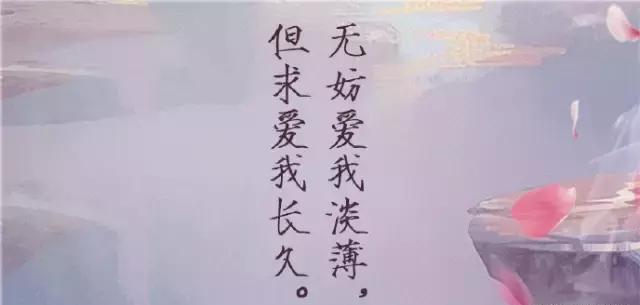 无妨爱我淡薄，
但求爱我长久。